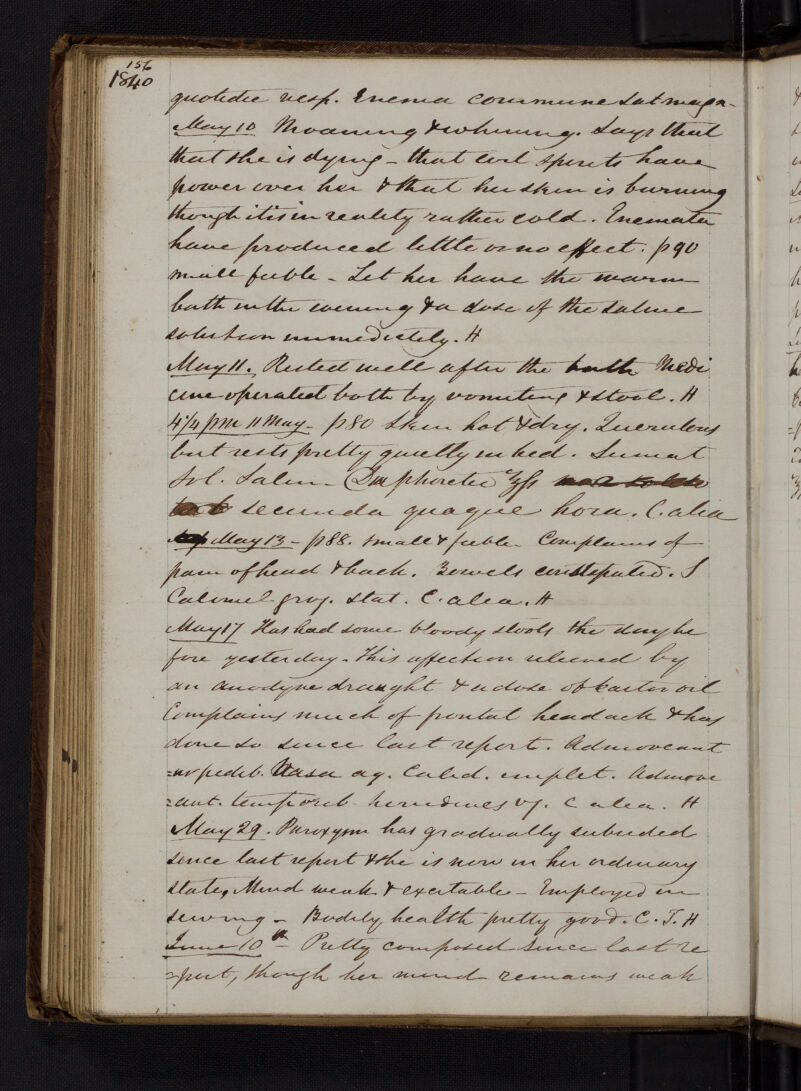 156
1840
quotidie vesp. Enema commune sat magn-
May 10 Moaning & whining. Says that
that she is dying - that evil spirits have
power over her & that her skin is burning
though it is in reality rather cold. Enemata
have produced little or no effect. p 90
small feeble - Let her have the warm
bath in the evening & a dose of the saline
solution immediately. H
May 11. Rested well after the bath Medi
cine operated both by vomiting & stool. H
4 1/4 pm 11 May - p 80 Skin hot & dry. Querulous
but rests pretty quietly in bed. Sumat
Sol. Salin - Diaphoretic ℥ss
secunda quaque hora. C. alia
May 13 - p 88. small & feeble. Complains of
pain of head & back. Bowels constipated. S
Calomel gr vj. stat. C. alia. H
May 17 Has had some bloody stools the day be
fore yesterday. This affection relieved by
an anodyne draught & a dose of Castor oil
Complains much of frontal headach & has
done so since last report. Admoveant
=ur pedib. Vasa aq. Calid. implet. Admove
=ant. temporib hirudines vj. C alia. H
May 29. Paroxysm has gradually subsided
since last report & she is now in her ordinary
state, Mind weak & excitable - Employed in
sewing - Bodily health pretty good. C. T. H
June 10th - Pretty composed since last re
=port, though her mind remains weak